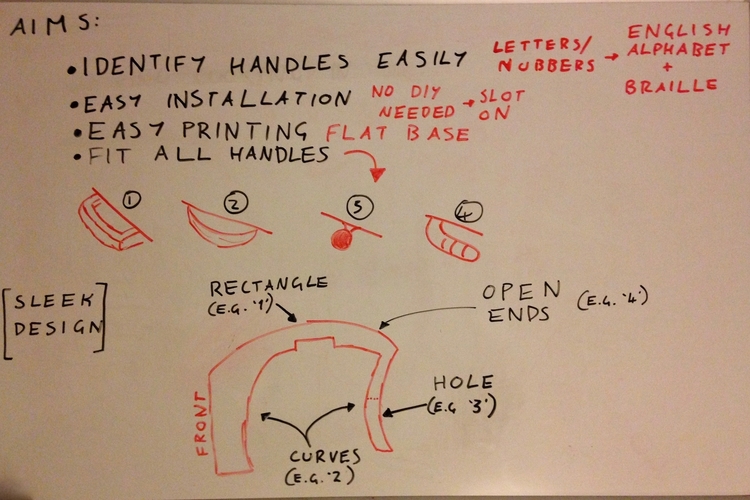 AIMS:
• IDENTIFY HANDLES EASILY LETTERS/ NUBBERS → ENGLISH ALPHABET + BRAILLE
• EASY INSTALLATION NO DIY NEEDED → SLOT ON
• EASY PRINTING FLAT BASE
• FIT ALL HANDLES
1 2 3 4
[SLEEK DESIGN]
RECTANGLE
(E.G. '1')
OPEN ENDS (E.G. '4')
HOLE
(E.G '3')
FRONT
CURVES
(E.G. '2)